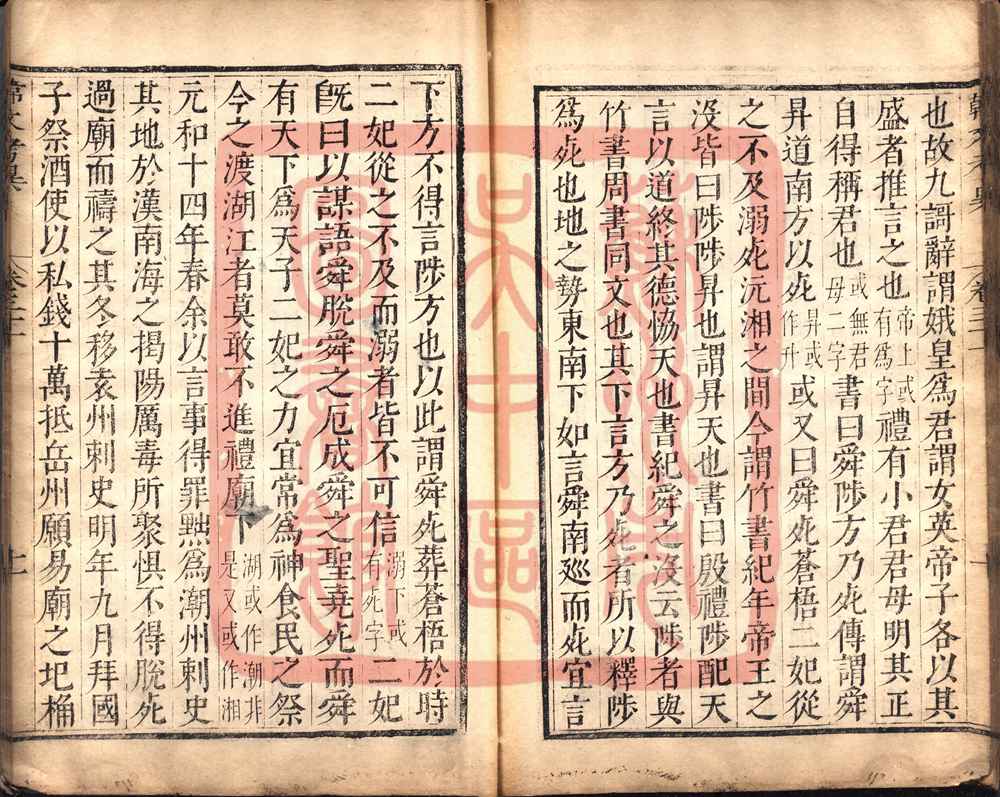 也故九謌辭謂娥皇爲君謂女英帝子各以其
盛者推言之也帝上或有爲字禮有小君君母明其正
自得稱君也或無君母二字書曰舜陟方乃死傳謂舜
昇道南方以死昇或作升或又曰舜死蒼梧二妃從
之不及溺死沅湘之間今謂竹書紀年帝王之
沒皆曰陟陟昇也謂昇天也書曰殷禮陟配天
言以道終其德恊天也書紀舜之沒云陟者與
竹書周書同文也其下言方乃死者所以釋陟
爲死也地之勢東南下如言舜南廵而死宜言
下方不得言陟方也以此謂舜死葬蒼梧於時
二妃從之不及而溺者皆不可信溺下或有死字二妃
旣曰以謀語舜脫舜之厄成舜之聖堯死而舜
有天下爲天子二妃之力宜常爲神食民之祭
今之渡湖江者莫敢不進禮廟下湖或作潮非是又或作湘
元和十四年春余以言事得罪黜爲潮州刺史
其地於漢南海之揭陽厲毒所聚懼不得脫死
過廟而禱之其冬移袁州刺史明年九月拜國
子祭酒使以私錢十萬抵岳州願易廟之圮桷